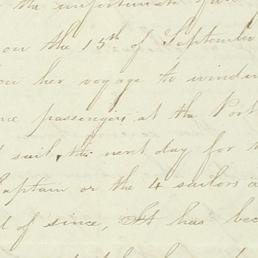 the unfortunate
on the 15th of September
her voyage to
passengers at the Port
sail, the next day for
Captain or the 4 sailors a
of since, It has bee